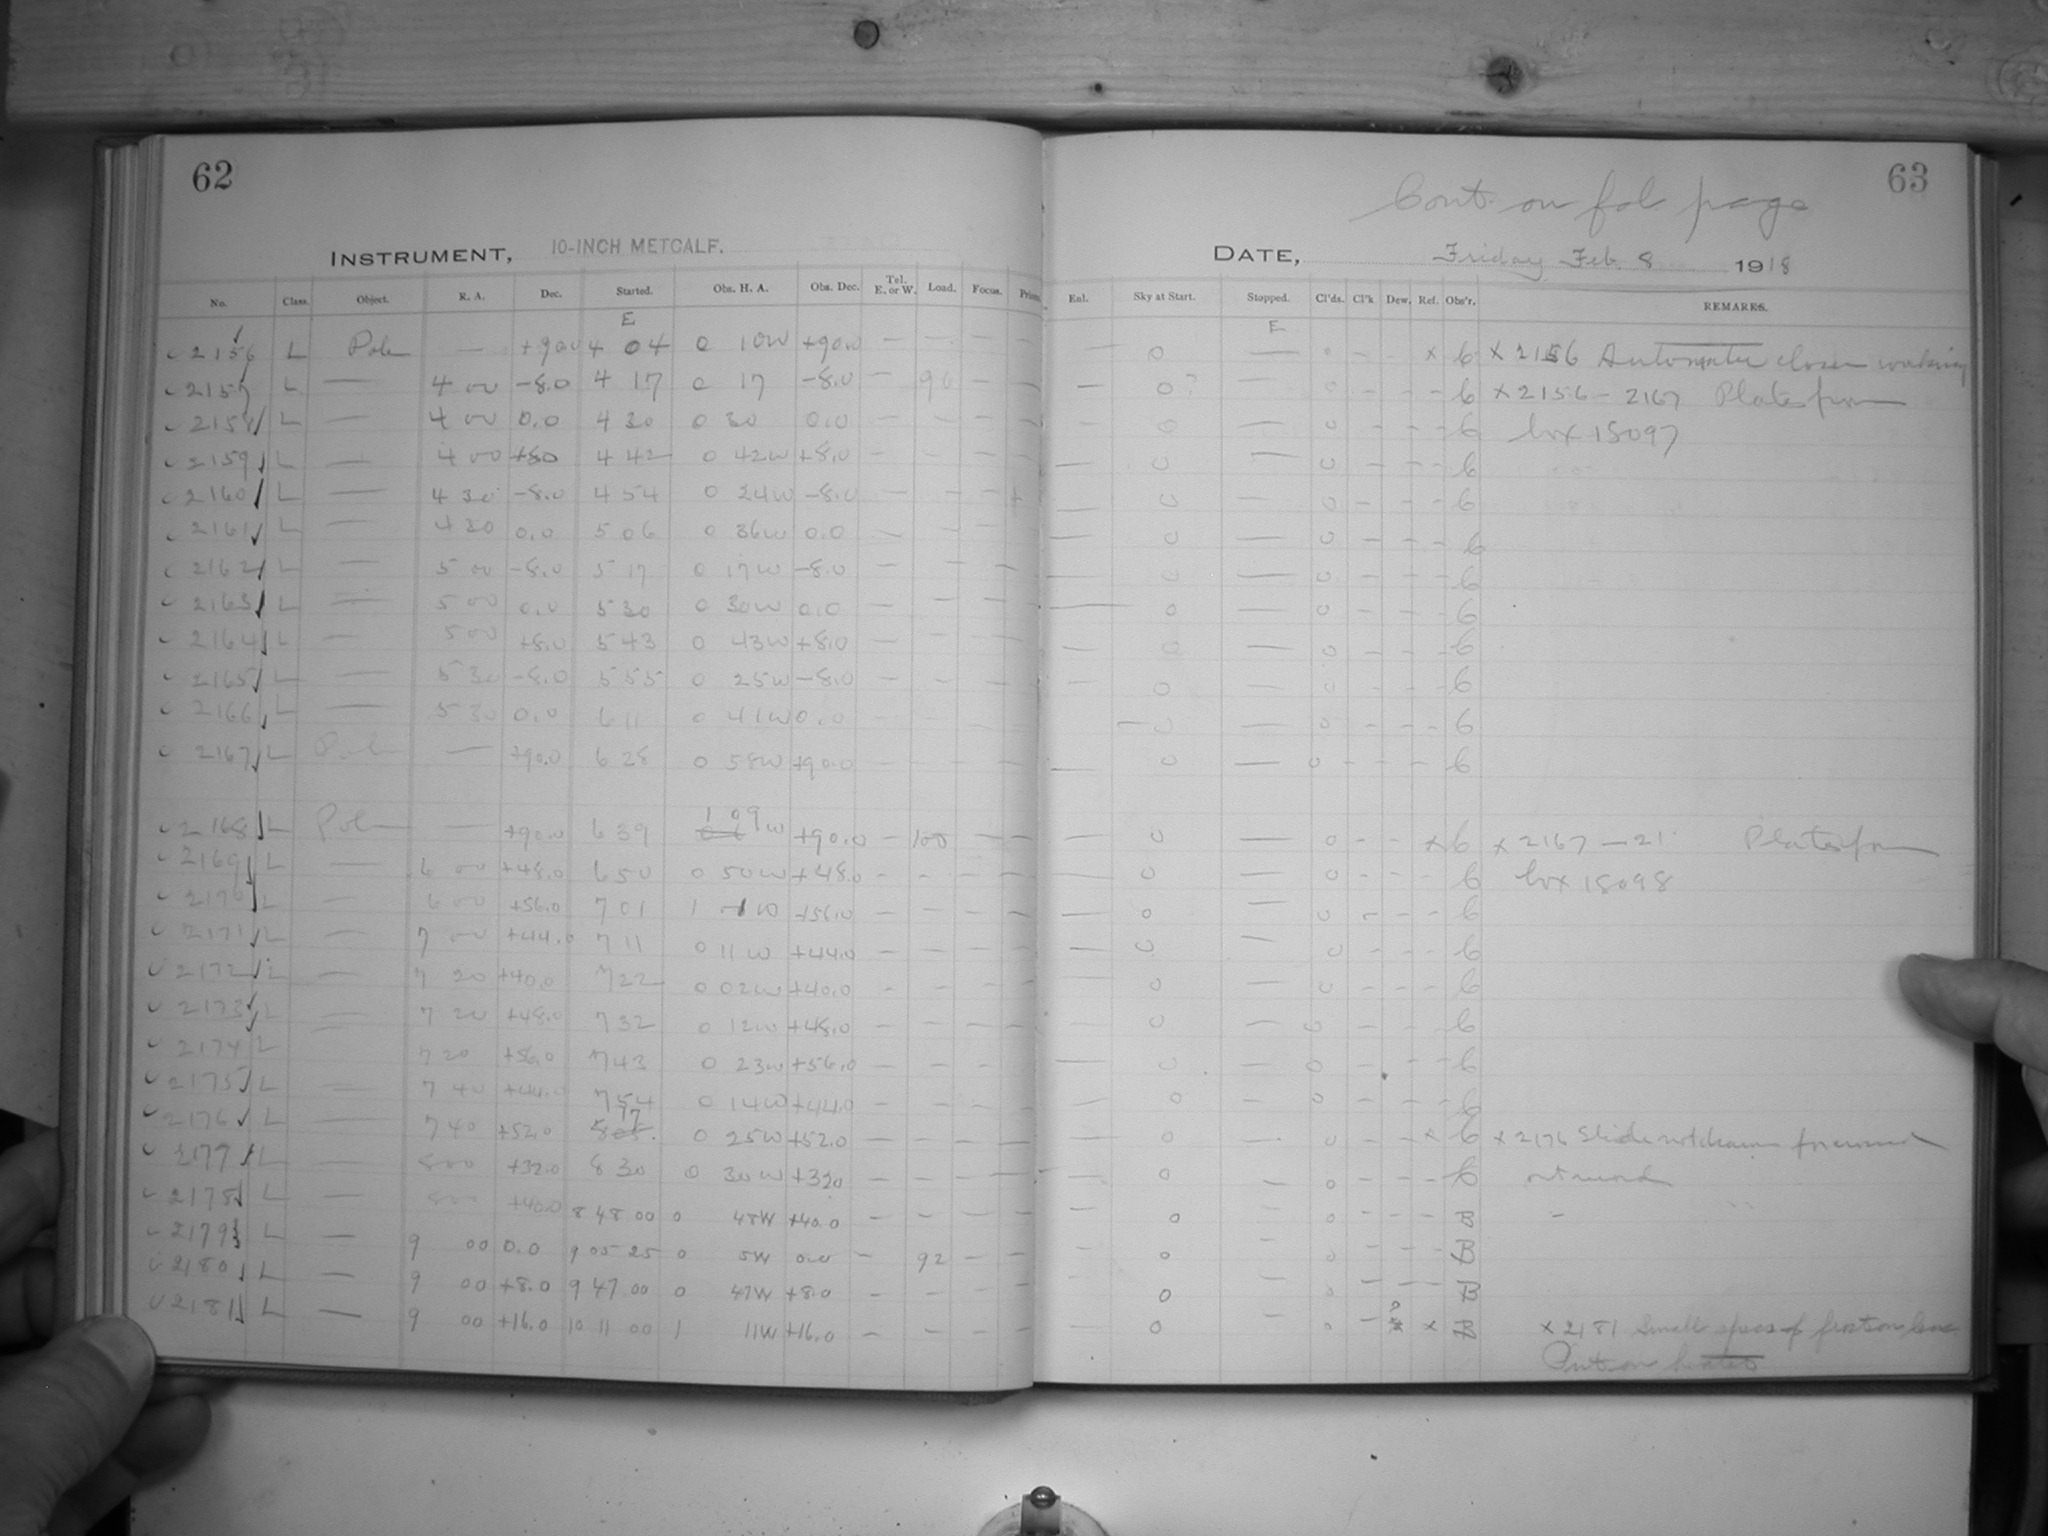 62
INSTRUMENT, 10-INCH METCALF.
No. Class. Object. R. A. Dec. Started. Obs. H. A. Obs. Dec. Tel. E. or W. Load. Focus.
E
2156 L Pole — +90.0 4 04 0 10W +90.0 — — — —
2157 L — 4 00 -8.0 4 17 0 17 -8.0 — 90 — —
2158 L — 4 00 0.0 4 30 0 30 0.0 — — — —
2159 L — 4 00 +8.0 4 42 0 42W +8.0 — — — —
2160 L — 4 30 -8.0 4 54 0 24W -8.0 — — —
2161 L — 4 30 0.0 5 06 0 36W 0.0 — — — —
2162 L — 5 00 -8.0 5 17 0 17W -8.0 — — — —
2163 L — 5 00 0.0 5 30 0 30W 0.0 — — — —
2164 L — 5 00 +8.0 5 43 0 43W +8.0 — — — —
2165 L — 5 30 -8.0 5 55 0 25W -8.0 — — — —
2166 L — 5 30 0.0 6 11 0 41W 0.0 — — — —
2167 L Pole — +90.0 6 28 0 58W +90.0 — — — —
2168 L Pole — +90.0 6 39 1 09W +90.0 — 100 — —
2169 L — 6 00 +48.0 6 50 0 50W +48.0 — — — —
2170 L — 6 00 +56.0 7 01 1 1W +56.0 — — — —
2171 L — 7 00 +44.0 7 11 0 11W +44.0 — — — —
2172 L — 7 20 +40.0 7 22 0 02W +40.0 — — — —
2173 L — 7 20 +48.0 7 32 0 12W +48.0 — — — —
2174 L — 7 20 +56.0 7 43 0 23W +56.0 — — — —
2175 L — 7 40 +44.0 7 54 0 14W +44.0 — — — —
2176 L — 7 40 +52.0 8 05 17 0 25W +52.0 — — — —
2177 L — 8 00 +32.0 8 30 0 30W +32.0 — — — —
2178 L — 8 00 +40.0 8 48 00 0 48W +40.0 — — — —
2179 L — 9 00 0.0 9 05 25 0 5W 0.0 — 92 — —
2180 L — 9 00 +8.0 9 47 00 0 47W +8.0 — — — —
2181 L — 9 00 +16.0 10 11 00 1 11W +16.0 — — — —
63
Cont. on fol page
DATE, Friday Feb. 8 1918
Enl. Sky at Start. Stopped. Cl'ds. Cl'k Dew. Ref. Obs'r. REMARKS.
E
— 0 — 0 - - x 6 x 2156 Automatic closer working
— 0? — 0 - - - 6 x 2156 - 2167 Plates from
— 0 — 0 - - - 6 box 15097
— 0 — 0 - - - 6
— 0 — 0 - - - 6
— 0 — 0 - - - 6
— 0 — 0 - - - 6
— 0 — 0 - - - 6
— 0 — 0 - - - 6
— 0 — 0 - - - 6
— 0 — 0 - - - 6
— 0 — 0 - - - 6
— 0 — 0 - - x 6 x 2167 — 21 Plates from
— 0 — 0 - - - 6 box 15098
— 0 — 0 - - - 6
— 0 — 0 - - - 6
— 0 — 0 - - - 6
— 0 — 0 - - - 6
— 0 — 0 - - - 6
— 0 — 0 - - - 6
— 0 — 0 - - x 6 x 2176 Slide not drawn
— 0 — 0 - - - 6
— 0 — 0 - - - B -
— 0 — 0 - - - B
— 0 — 0 - - - B
— 0 — 0 - ? x B x 2181 Small specs of frost on lens
Put on heater